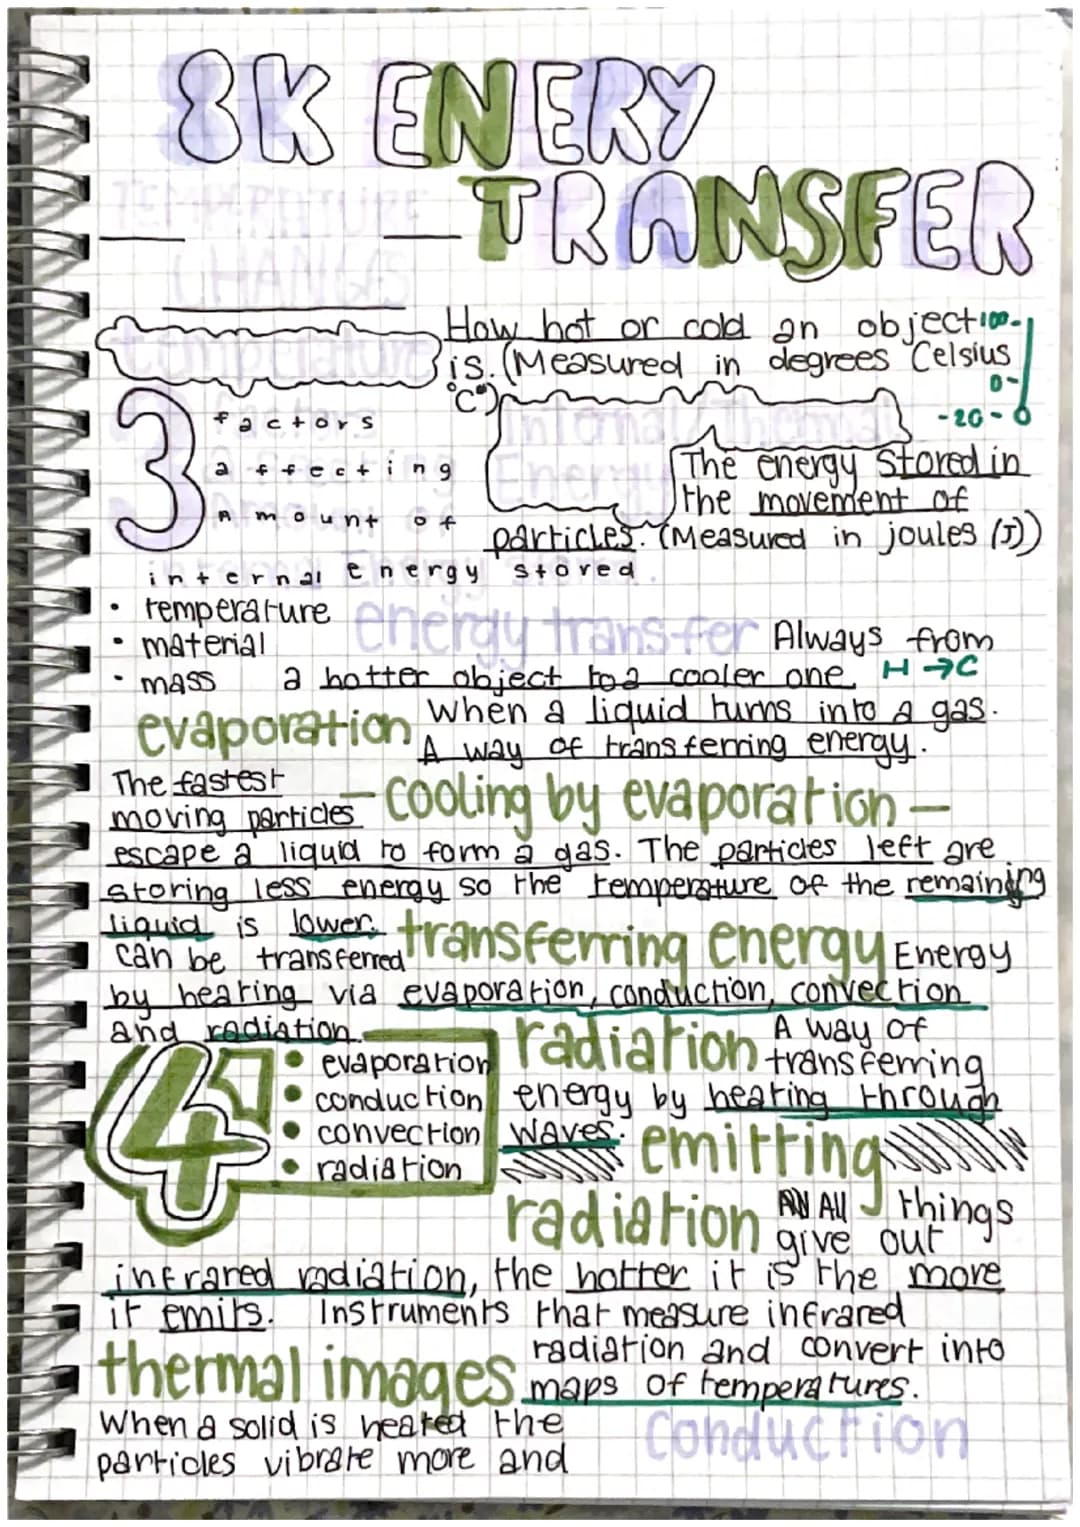 8K ENERY
TRANSFER
TEMPERATURE
CHANGES
temperature
How hot or cold an object
is. (Measured in degrees Celsius
°C°)
100-
0-
-20-
3 factors
affecting
Amount of
internal Energy stored.
Internal/Thermal
Energy
The energy stored in
the movement of
particles. (Measured in joules (J))
• temperature
• material
• mass
energy transfer Always from
a hotter object to a cooler one H → C
evaporation When a liquid turns into a gas.
A way of transferring energy.
- cooling by evaporation -
The fastest
moving particles
escape a liquid to form a gas. The particles left are
storing less energy so the temperature of the remaining
liquid is lower.
transferring energy Energy
can be transferred
by heating via evaporation, conduction, convection
and radiation.
4
• evaporation
• conduction
• convection
• radiation
radiation A way of
transferring
energy by heating through
waves.
emitting
radiation All things
give out
infrared radiation, the hotter it is the more
it emits. Instruments that measure infrared
thermal images radiation and convert into
maps of temperatures.
conduction
When a solid is heated the
particles vibrate more and